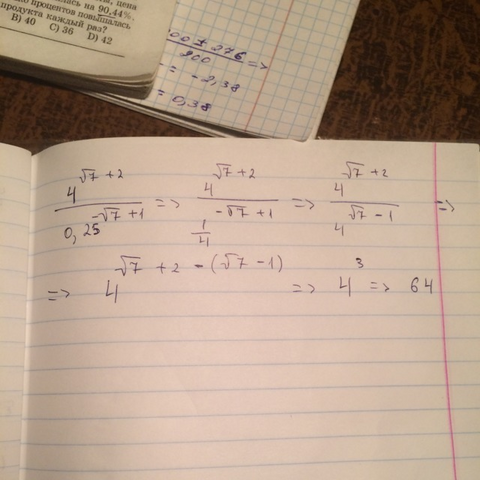 цена
лась на 90,44%,
процентов повышалась
продукта каждый раз?
B) 40 C) 36 D) 42
± 276 =>
200
= -2,38
= 0,38
4^(√7 + 2) / 0,25^(-√7 + 1) => 4^(√7 + 2) / (1/4)^(-√7 + 1) => 4^(√7 + 2) / 4^(√7 - 1) =>
=> 4^(√7 + 2 - (√7 - 1)) => 4^3 => 64